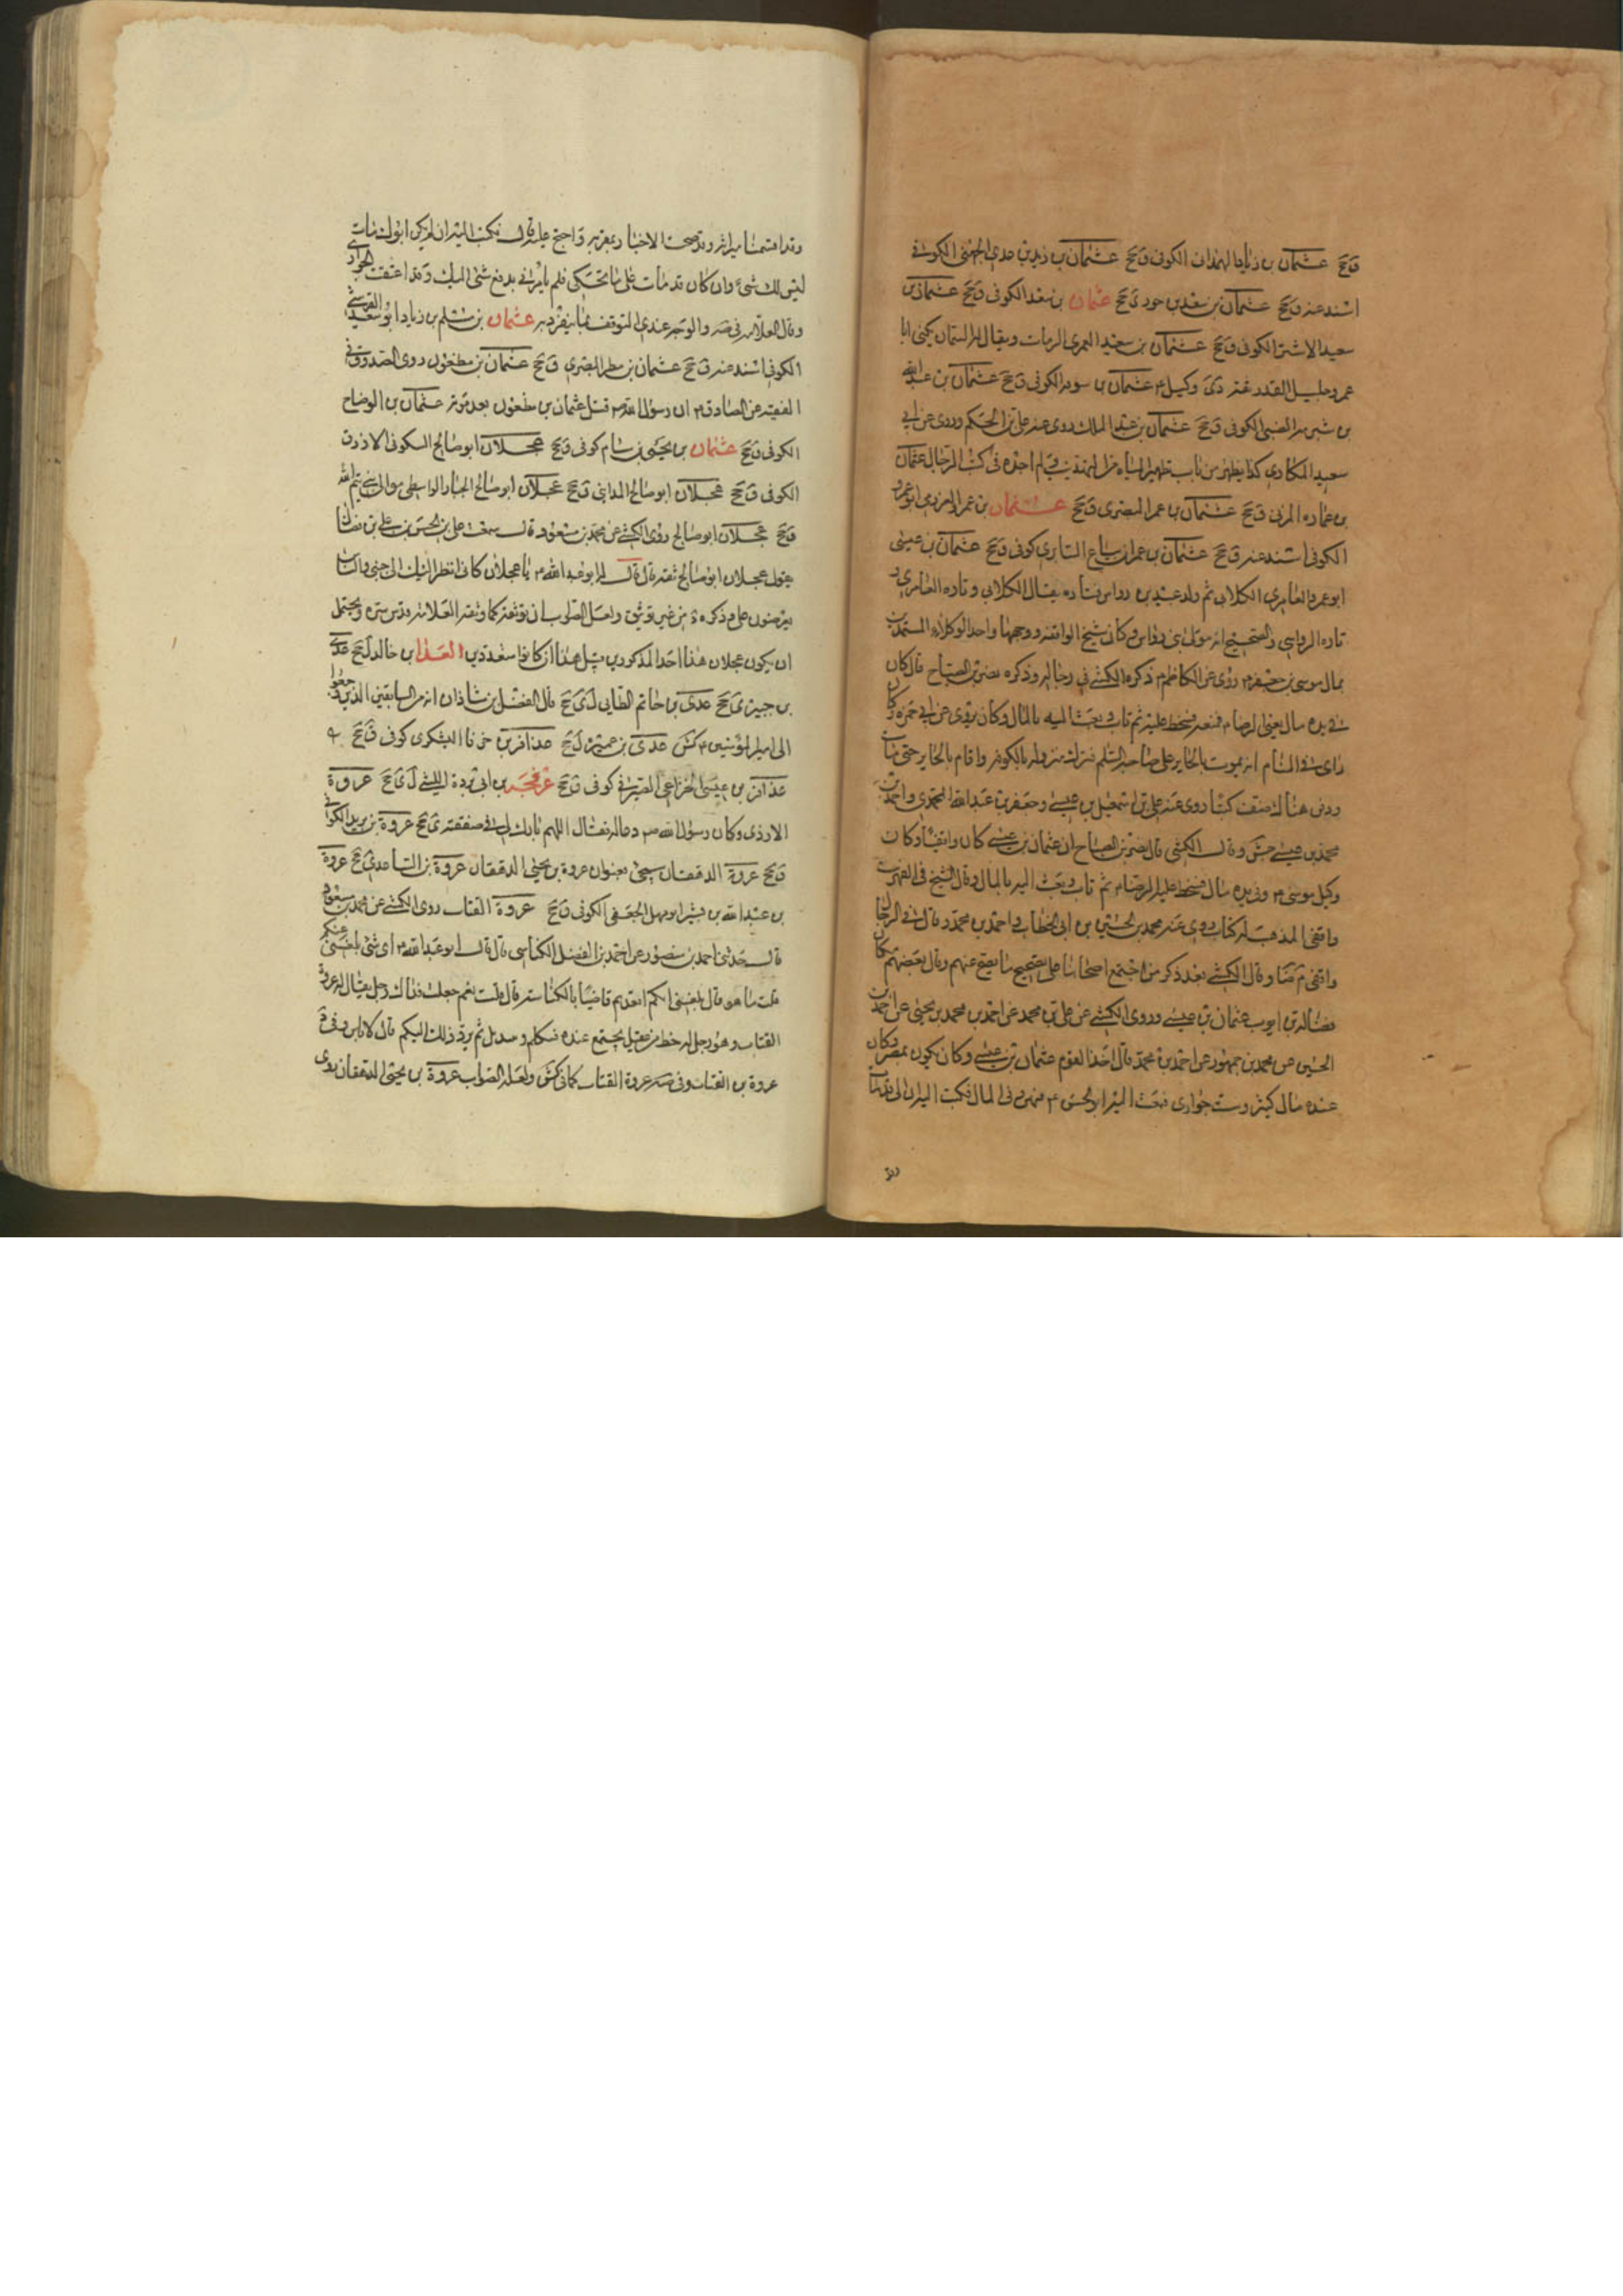 ق جخ عثمان بن زياد الهمداني الكوفي ق جخ عثمان بن زيد بن عدي الجهني الكوفي
اسند عنه ق جخ عثمان بن سعد بن حود ي جخ عثمان بن سعد الكوفي ق جخ عثمان بن
سعيد الاشتر الكوفي ق جخ عثمان بن سعيد العمري الزيات ويقال له السمان يكنى ابا
عمرو جليل القدر ثقة دي وكيل م عثمان بن سويد الكوفي ق جخ عثمان بن عبد الله
بن شبرمه الضبي الكوفي ق جخ عثمان بن عبد الملك روى عنه علي بن الحكم وروى عن ابي
سعيد المكاري كذا يظهر من باب تطهير المياه من التهذيب ولم اجده في كتب الرجال عثمان
بن عماره المزني ق جخ عثمان بن عمر البصري ق جخ عثمان بن عمر ابو عمرو
الكوفي اسند عنه ق جخ عثمان بن عمران بياع السابري كوفي ق جخ عثمان بن عيسى
ابو عمرو العامري الكلابي ثم ولد عبيد بن رواس فتاره يقال الكلابي وتاره العامري و
تاره الرواسي والصحيح انه مولى بني رواس وكان شيخ الواقفه ووجهها واحد الوكلاء المستبدين
بمال موسى بن جعفر م روى عن الكاظم م ذكره الكشي في رجاله وذكره نصر بن الصباح قال كان
في يده مال يعني الرضا م فمنعه فسخط عليه ثم تاب وبعث اليه بالمال وكان يروى عن ابي حمزه وكان
راى في المنام انه يموت بالحاير على صاحبه السلم فترك منزله بالكوفه واقام بالحاير حتى مات
ودفن هناك صنف كتبا روى عنه علي بن اسمعيل بن عيسى وجعفر بن عبد الله المحمدي واحمد بن
محمد بن عيسى جش وقال الكشي قال نصر بن الصباح ان عثمان بن عيسى كان واقفيا وكان
وكيل موسى م وفي يده مال فسخط عليه الرضا م ثم تاب وبعث اليه بالمال وقال الشيخ في الفهرست
واقفي المذهب له كتاب روى عنه محمد بن الحسين بن ابي الخطاب واحمد بن محمد وقال في الرجال
واقفي م ضا وقال الكشي بعد ذكر من اجتمع اصحابنا على تصحيح ما يصح عنهم وقال بعضهم مكان
فضاله بن ايوب عثمان بن عيسى وروى الكشي عن علي بن محمد عن احمد بن محمد بن يحيى عن احمد بن
الحسين عن محمد بن جمهور عن احمد بن محمد قال احد القوم عثمان بن عيسى وكان يكون بمصر وكان
عنده مال كثير وست جواري فبعث اليه ابو الحسن م فيهن وفي المال فكتب اليه ان ابي قد مات
وقد
وقد اقتسمنا ميراثه وقد صحت الاخبار بموته واحتج عليه قال فكتب اليه ان لم يكن ابوك مات
ليس لك شيء وان كان قد مات على ما تحكي فلم يامرني بدفع شيء اليك وقد اعتقت الجواري
وقال العلامه في صه والوجه عندي التوقف فيما ينفرد به عثمان بن مسلم بن زياد ابو سعيد القرشي
الكوفي اسند عنه ق جخ عثمان بن مطر البصري ق جخ عثمان بن مظعون روى الصدوق في
الفقيه عن الصادق م ان رسول الله ص قبل عثمان بن مظعون بعد موته عثمان بن الوضاح
الكوفي ق جخ عثمان بن يحيى بن سام كوفي ق جخ عجلان ابو صالح السكوني الازرق
الكوفي ق جخ عجلان ابو صالح المدايني ق جخ عجلان ابو صالح الخباز الواسطي مولى بني تيم الله
ق جخ عجلان ابو صالح روى الكشي عن محمد بن مسعود قال سمعت علي بن الحسن بن علي بن فضال
يقول عجلان ابو صالح ثقه قال قال له ابو عبد الله م يا عجلان كاني انظر اليك الى جنبي والناس
يعرضون علي وذكره من غير توثيق ولعل الصواب ان توثقه كما وثقه العلامه قدس سره ويحتمل
ان يكون عجلان هذا احد المذكورين قبل هذا اذ كانوا متعددين العدا بن خالد ل جخ عدي
بن حاتم الطايي ل ي جخ قال الفضل بن شاذان انه من السابقين الذين رجعوا
الى امير المؤمنين م كش عدي بن عميره ل جخ عذافر بن اليشكري كوفي ق جخ
عذافر بن عيسى الخزاعي الصيرفي كوفي ق جخ عرفجه بن ابي برده الليثي ل ي جخ عروة
الازدي وكان رسول الله ص دعا له فقال اللهم بارك له في صفقته ي جخ عروة بن
ق جخ عروة الدهقان سيجيئ بعنوان عروة بن يحيى الدهقان عروة بن الساعدي جخ عروة
بن عبد الله بن قشير ابو مهل الجعفي الكوفي ق جخ عروة القتات روى الكشي عن محمد بن مسعود
قال حدثني احمد بن منصور عن احمد بن الفضل الكناسي قال قال لي ابو عبد الله م اي شيء بلغني عنكم
قلت ما هو قال بلغني انكم اقعدتم قاضيا بالكناسه قال قلت نعم جعلت فداك رجل يقال له عروة
القتات وهو رجل له حظ من عقل يجتمع عنده فنتكلم ونتسائل ثم يرد ذلك اليكم قال لا باس وفي د
عروة بن القتات وفي صه عروة القتات كما في كش ولعله الصواب عروة بن يحيى الدهقان روى